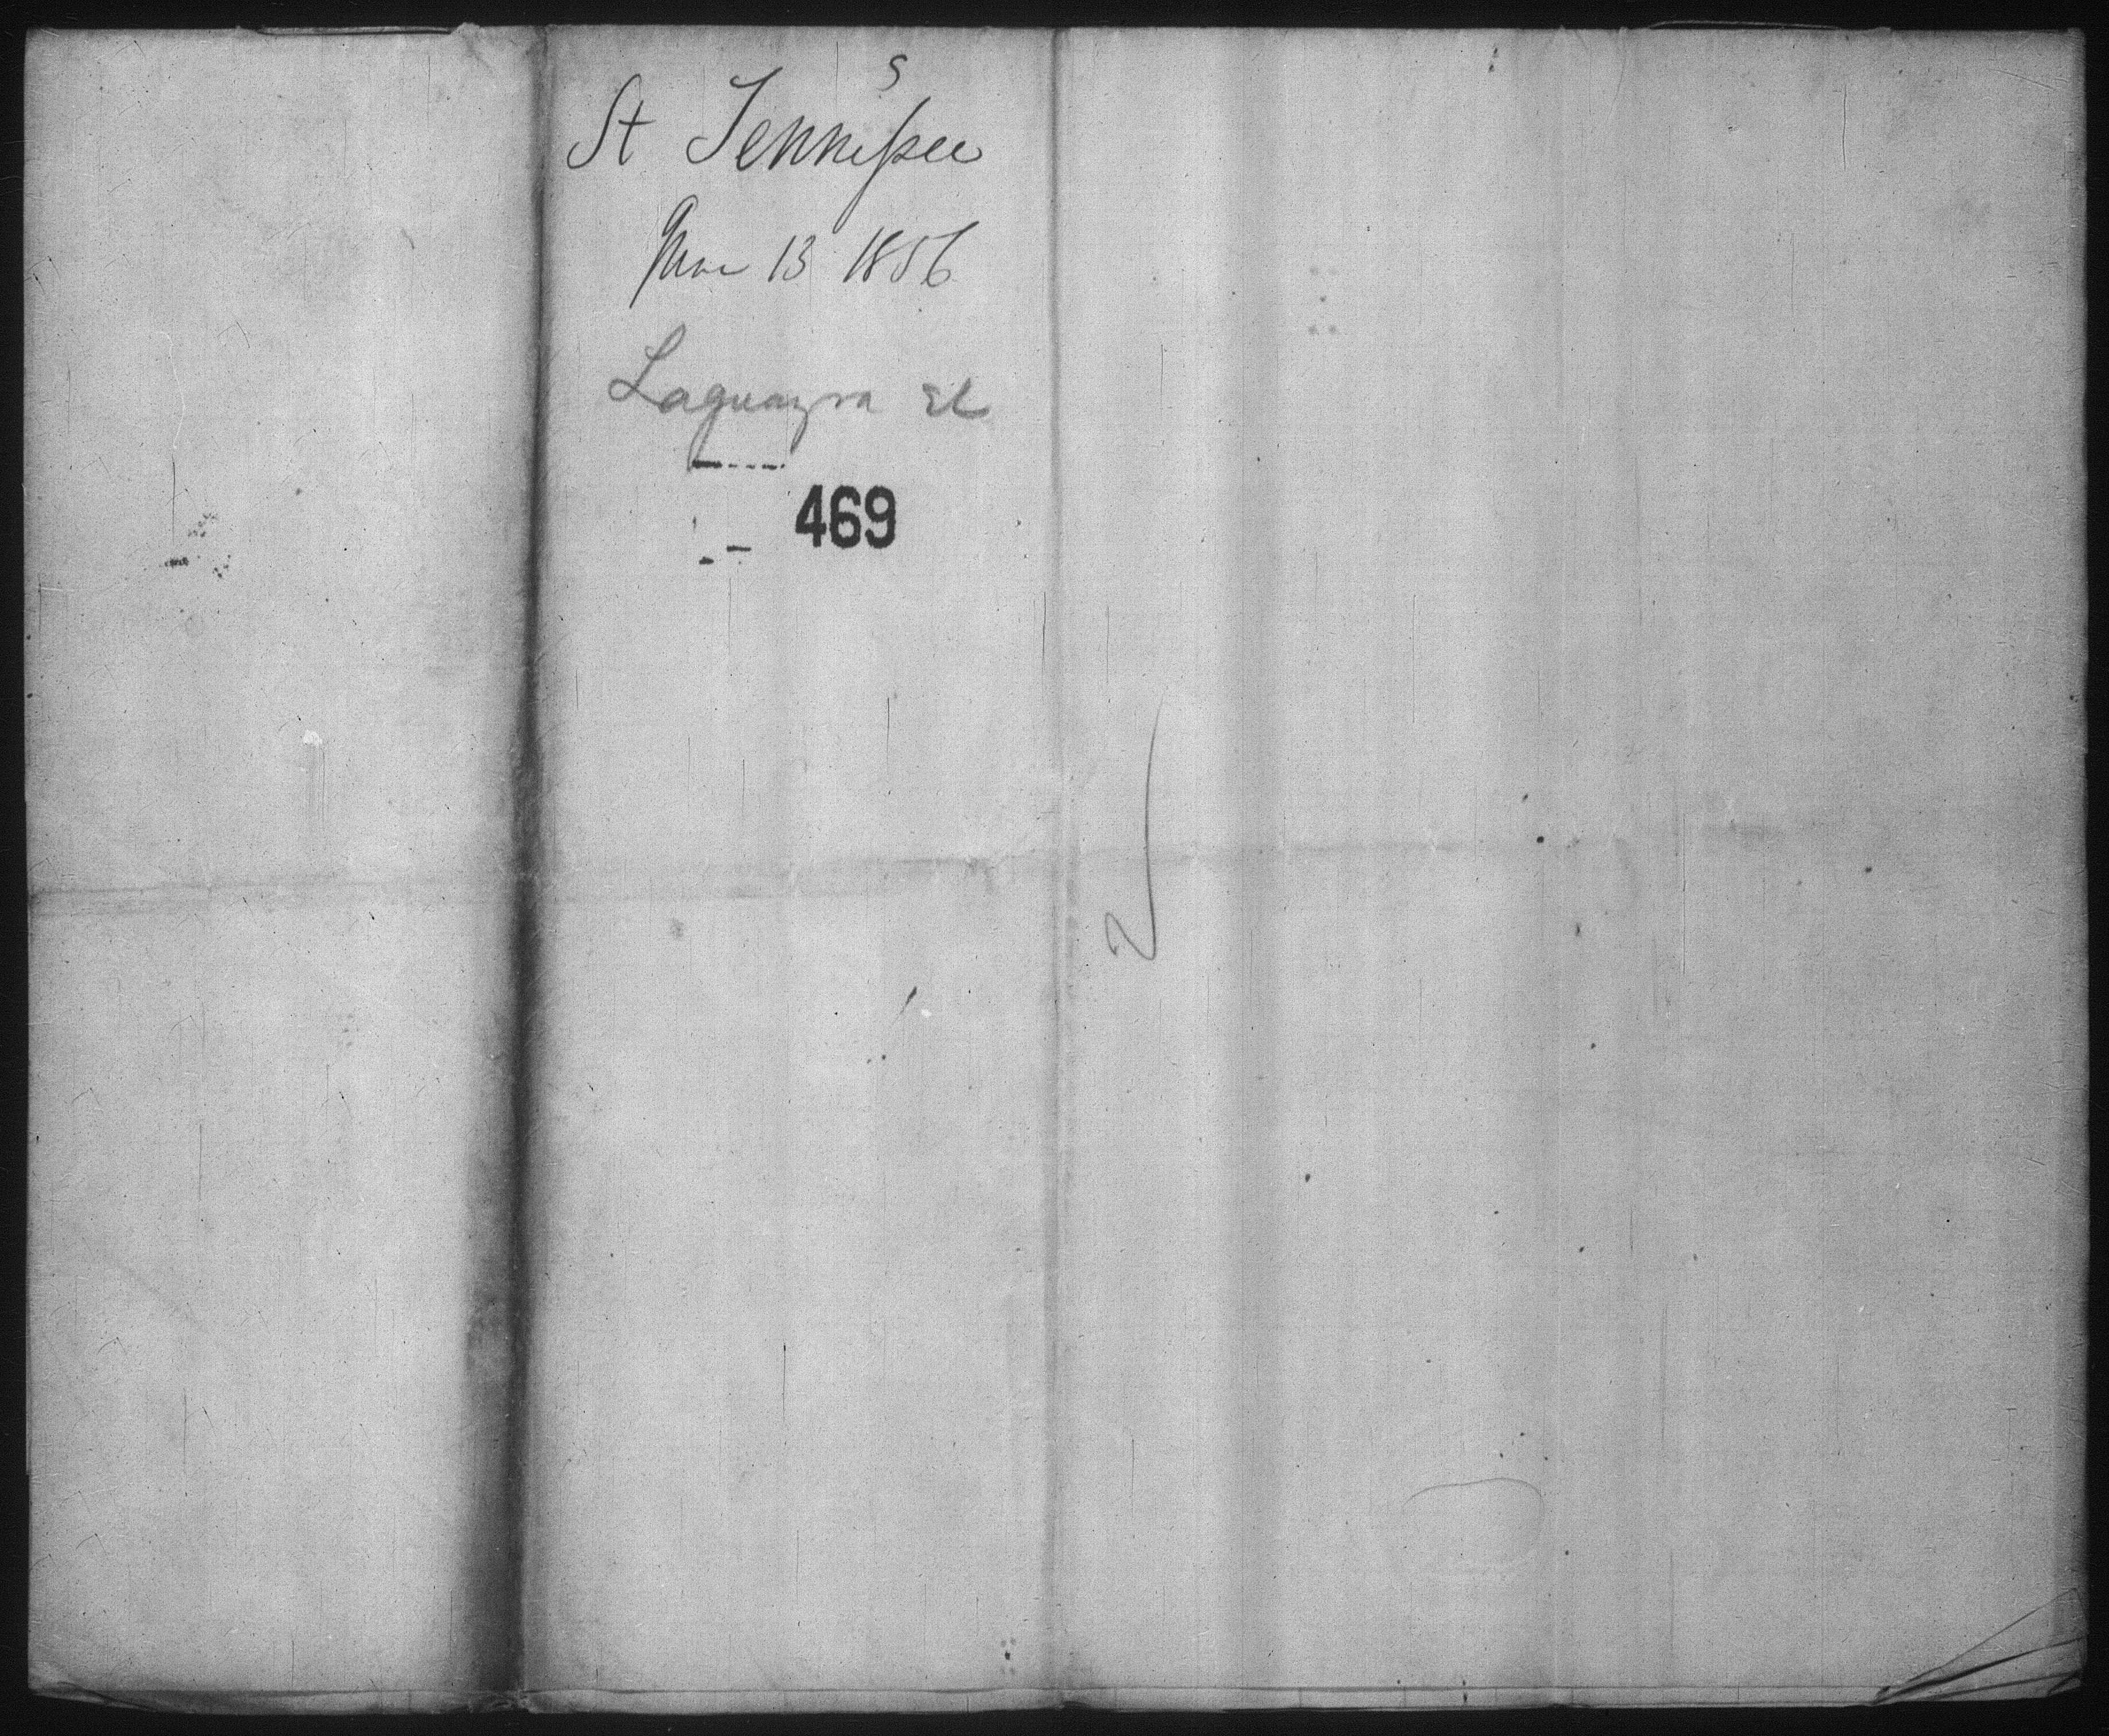 S
St Tennessee
June 13 1856
Laguayra &c
469